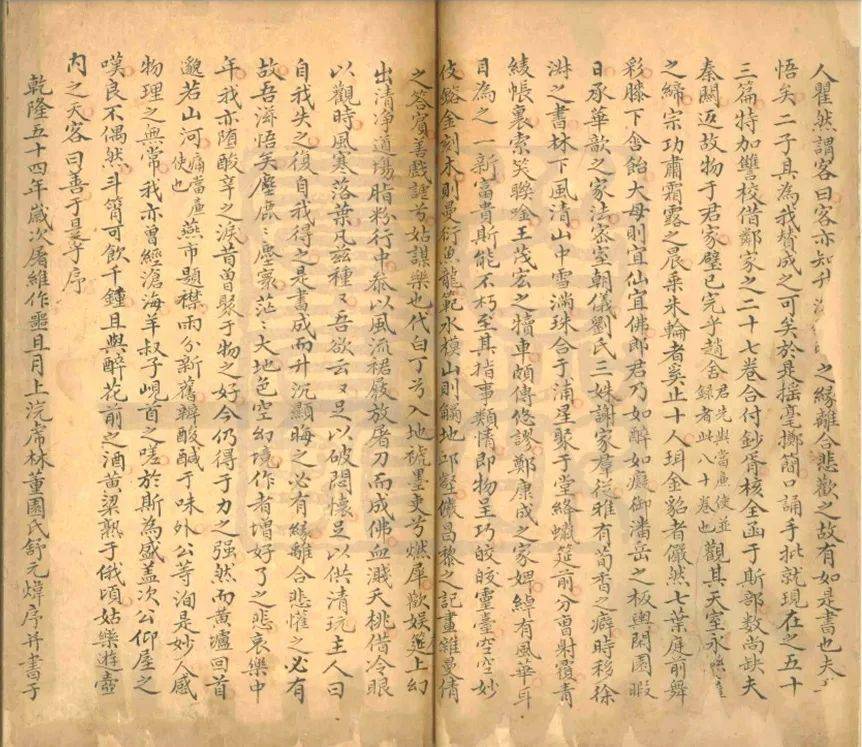 人瞿然謂客曰客亦知升 之緣離合悲歡之故有如是書也夫
悟矣二子其為我贊成之可矣於是搖毫擲簡口誦手批就現在之五十
三篇特加讐校借鄰家之二十七卷合付鈔胥核全函于斯部數尚缺夫
秦關返故物于君家璧已完乎趙舍君先與當廉使並錄者此八十卷也觀其天室永
之締宗功肅霜露之晨乘朱輪者奚止十人珥金貂者儼然七葉庭前舞
彩膝下含飴大母則宜仙宜佛郎君乃如醉如癡御潘岳之板輿閑園暇
日承華歆之家法密室朝儀劉氏三姝謝家羣從雅有荀香之癖時移徐
淛之書林下風清山中雪滿珠合于浦星聚于堂絳蠟筵前分曹射覆青
綾帳裏索笑聯唫王茂宏之犢車頗傳悠謬鄭康成之家婢綽有風華耳
目為之一新富貴斯能不朽至其指事類情即物呈巧皎皎靈臺空空妙
伎鎔金刻木則曼衍魚龍範水模山則觸地邱壑儼昌黎之記畫雜曼倩
之答賓善戲謔兮姑謀樂也代白丁兮入地褫墨吏兮燃犀歡娛筵上幻
出清淨道場脂粉行中參以風流裙屐放屠刀而成佛血濺夭桃借冷眼
以觀時風寒落葉凡兹種又吾欲云又足以破悶懷足以供清玩主人曰
自我失之復自我得之是書成而升沉顯晦之必有緣離合悲懽之必有
故吾滋悟矣塵鹿ミ塵寰茫ミ大地色空幻境作者增好了之悲哀樂中
年我亦墮酸辛之淚昔曾聚于物之好今仍得于力之强然而黃壚回首
邈若山河痛當廉使也燕市題襟兩分新舊韓酸鹹于味外公等洵是妙人感
物理之無常我亦曾經滄海羊叔子峴首之嗟於斯為盛盖次公仰屋之
嘆良不偶然斗筲可飲千鍾且與醉花前之酒黃粱熟于俄頃姑樂遊壺
內之天客曰善于是乎序
乾隆五十四年歲次屠維作噩且月上浣虎林董園氏舒元煒序并書于